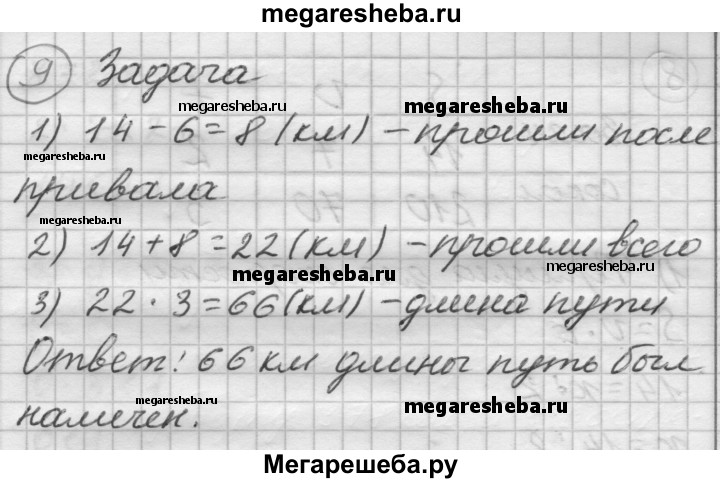 megaresheba.ru
9 Задача 8
megaresheba.ru megaresheba.ru
1) 14 - 6 = 8 (км) - прошли после
megaresheba.ru
привала
megaresheba.ru
2) 14 + 8 = 22 (км) - прошли всего
megaresheba.ru megaresheba.ru
3) 22 · 3 = 66 (км) - длина пути
Ответ: 66 км длины путь был
намечен.
megaresheba.ru megaresheba.ru
Мегарешеба.ру